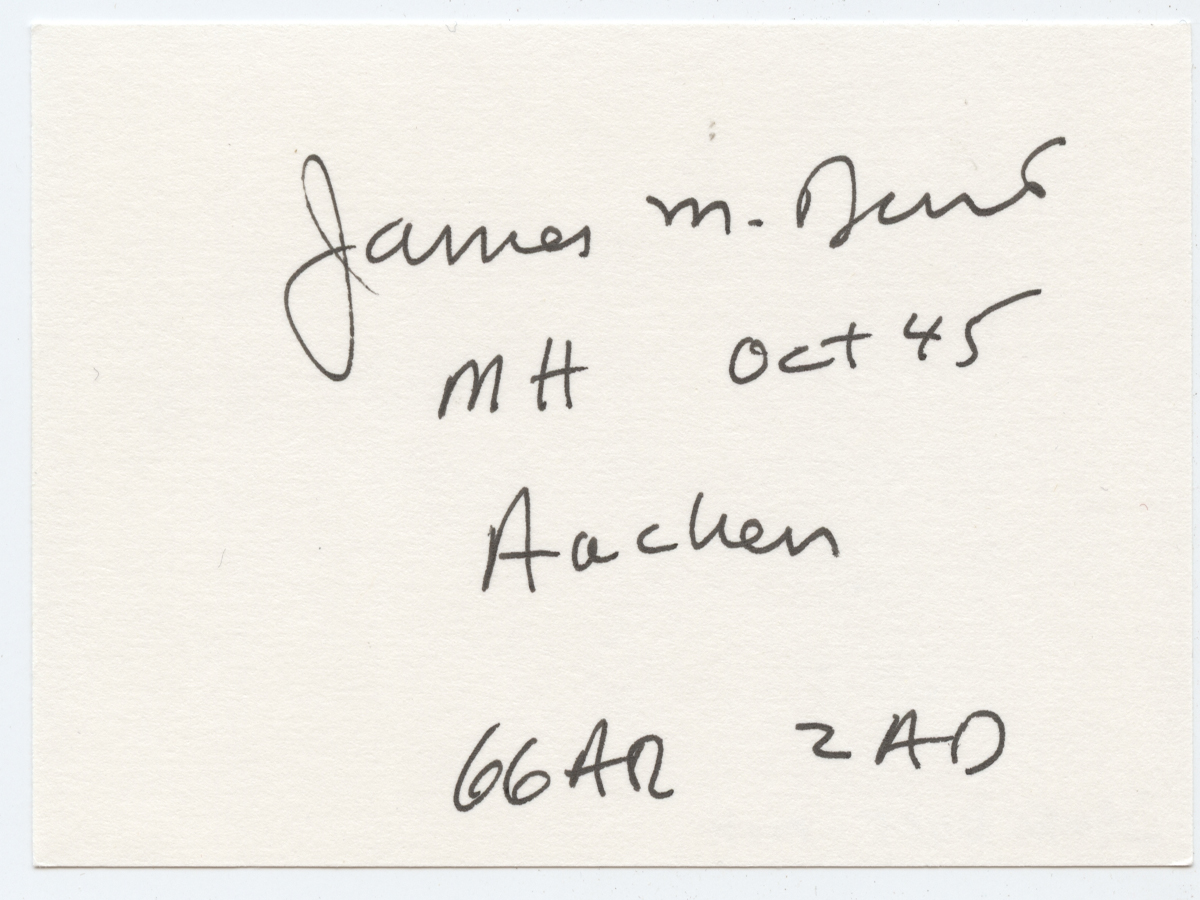 James M. Burt
MH Oct 45
Aachen
66AR 2AD